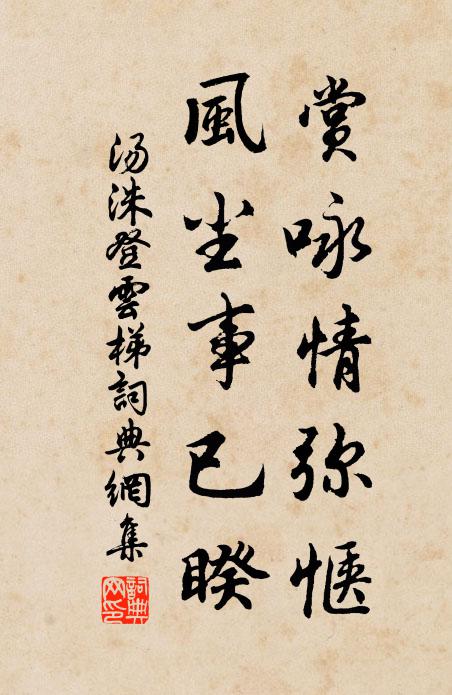 賞咏情弥惬
風尘事已睽
汤洙登雲梯詞典網集
詞典网印